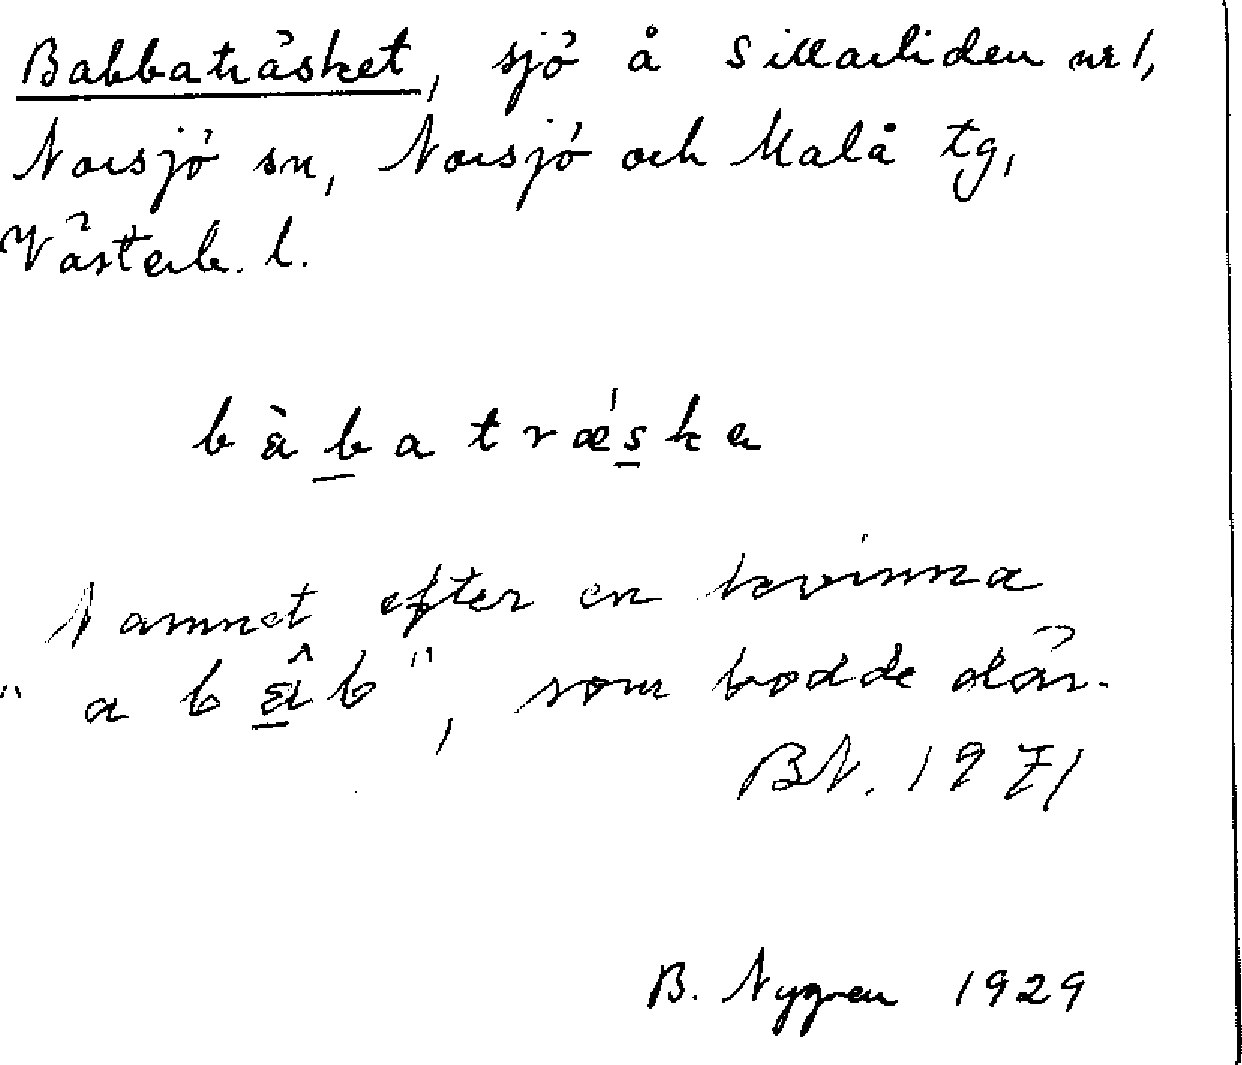 Babbaträsket, sjö å Sillarliden nr 1,
Norsjö sn, Norsjö och Malå tg,
Västerb. l.
bàbatrǽska
Namnet efter en kvinna
"a bâb", som bodde där.
BN. 1971
B. Nygren 1929